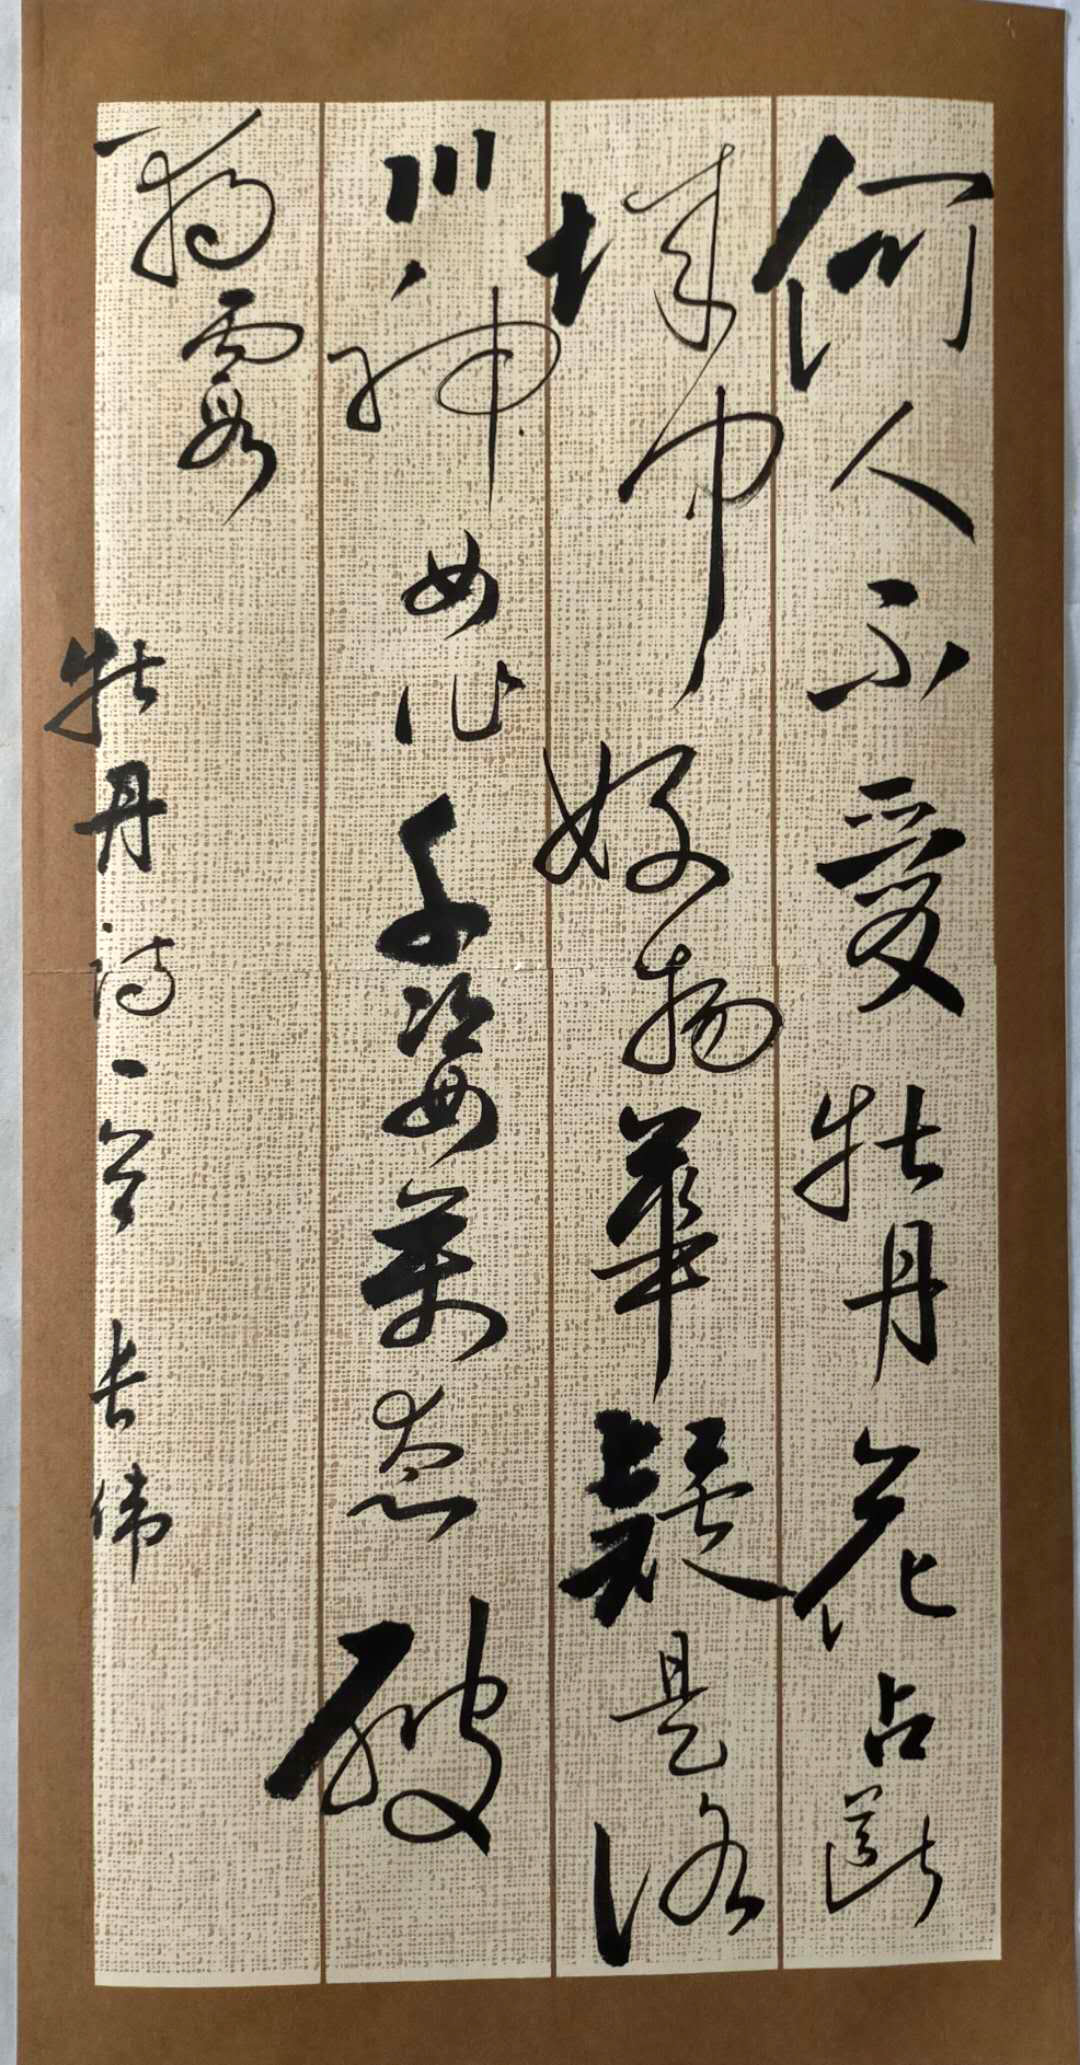 何人不爱牡丹花占断
城中好物華疑是洛
川神女作千姿萬态破
朝霞
牡丹诗一首 长伟